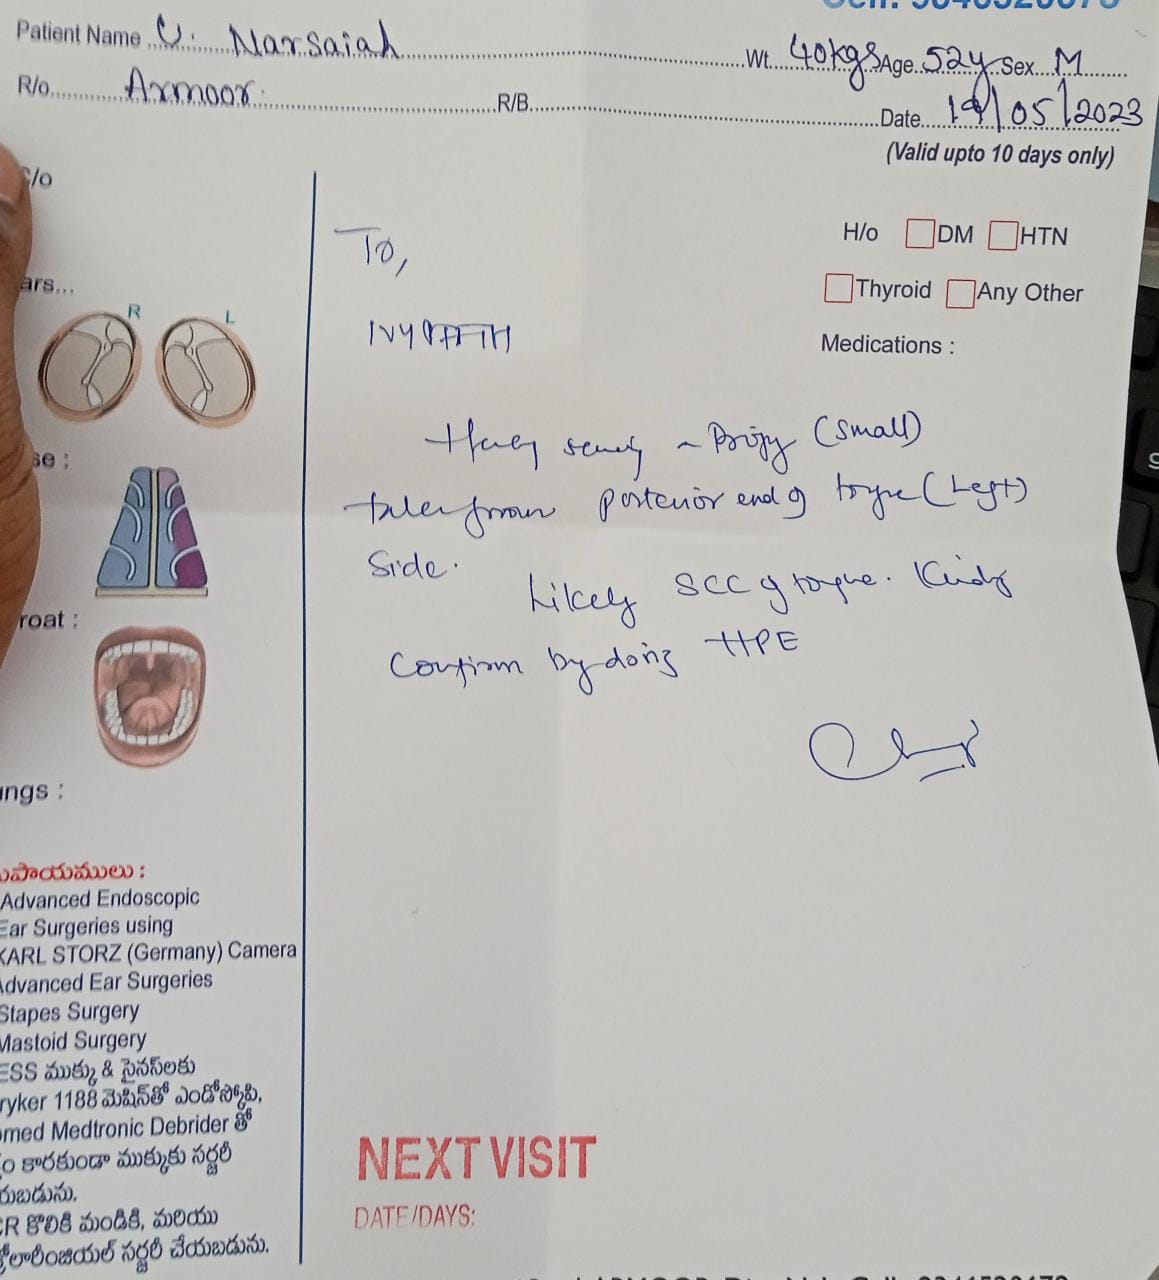 Patient Name U. Narsaiah Wt. 40kgs Age. 52y Sex. M
R/o. Armoor. R/B. Date. 19/05/2023
(Valid upto 10 days only)
C/o
H/o DM HTN
Thyroid Any Other
Medications :
ars...
R L
se :
roat :
ngs :
To,
(small)
taken from posterior end of tongue (Left)
side.
Likely SCC of tongue. Kindly
Confirm by doing HPE
పాయములు :
Advanced Endoscopic
Ear Surgeries using
KARL STORZ (Germany) Camera
Advanced Ear Surgeries
Stapes Surgery
Mastoid Surgery
ESS ముక్కు & సైనస్‌లకు
ryker 1188 మెషిన్‌తో ఎండోస్కోపి,
omed Medtronic Debrider తో
కారకుండా ముక్కుకు సర్జరీ
యబడును.
CR కొలికి మండికి, మరియు
లారింజియల్ సర్జరీ చేయబడును.
NEXT VISIT
DATE/DAYS: